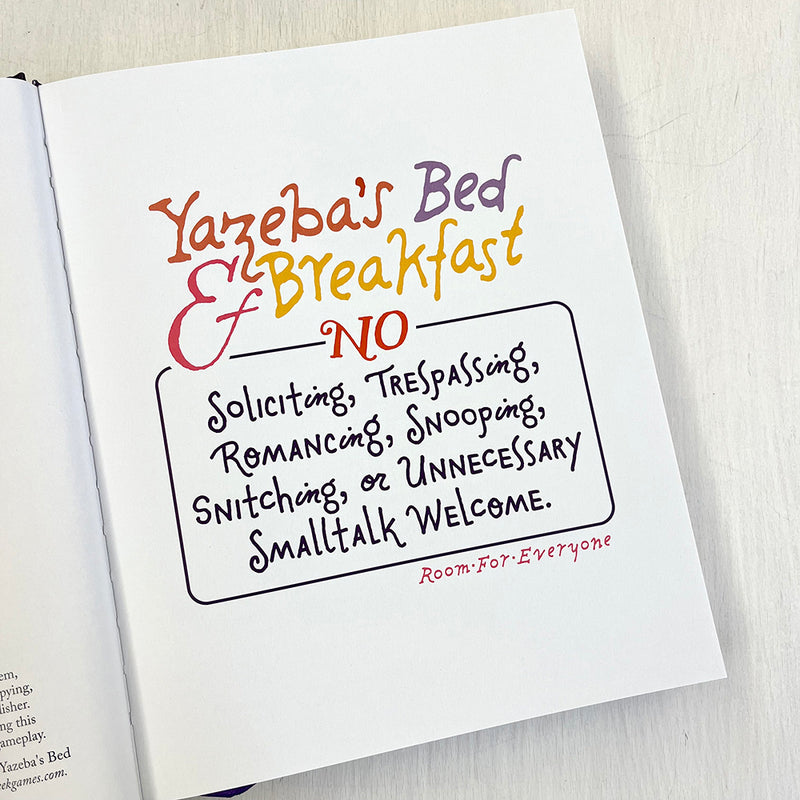 Yazeba's Bed
& Breakfast
NO
Soliciting, Trespassing,
Romancing, Snooping,
Snitching, or Unnecessary
Smalltalk Welcome.
Room·For·Everyone
pying,
lisher.
ng this
ameplay.
Yazeba's Bed
ekgames.com.